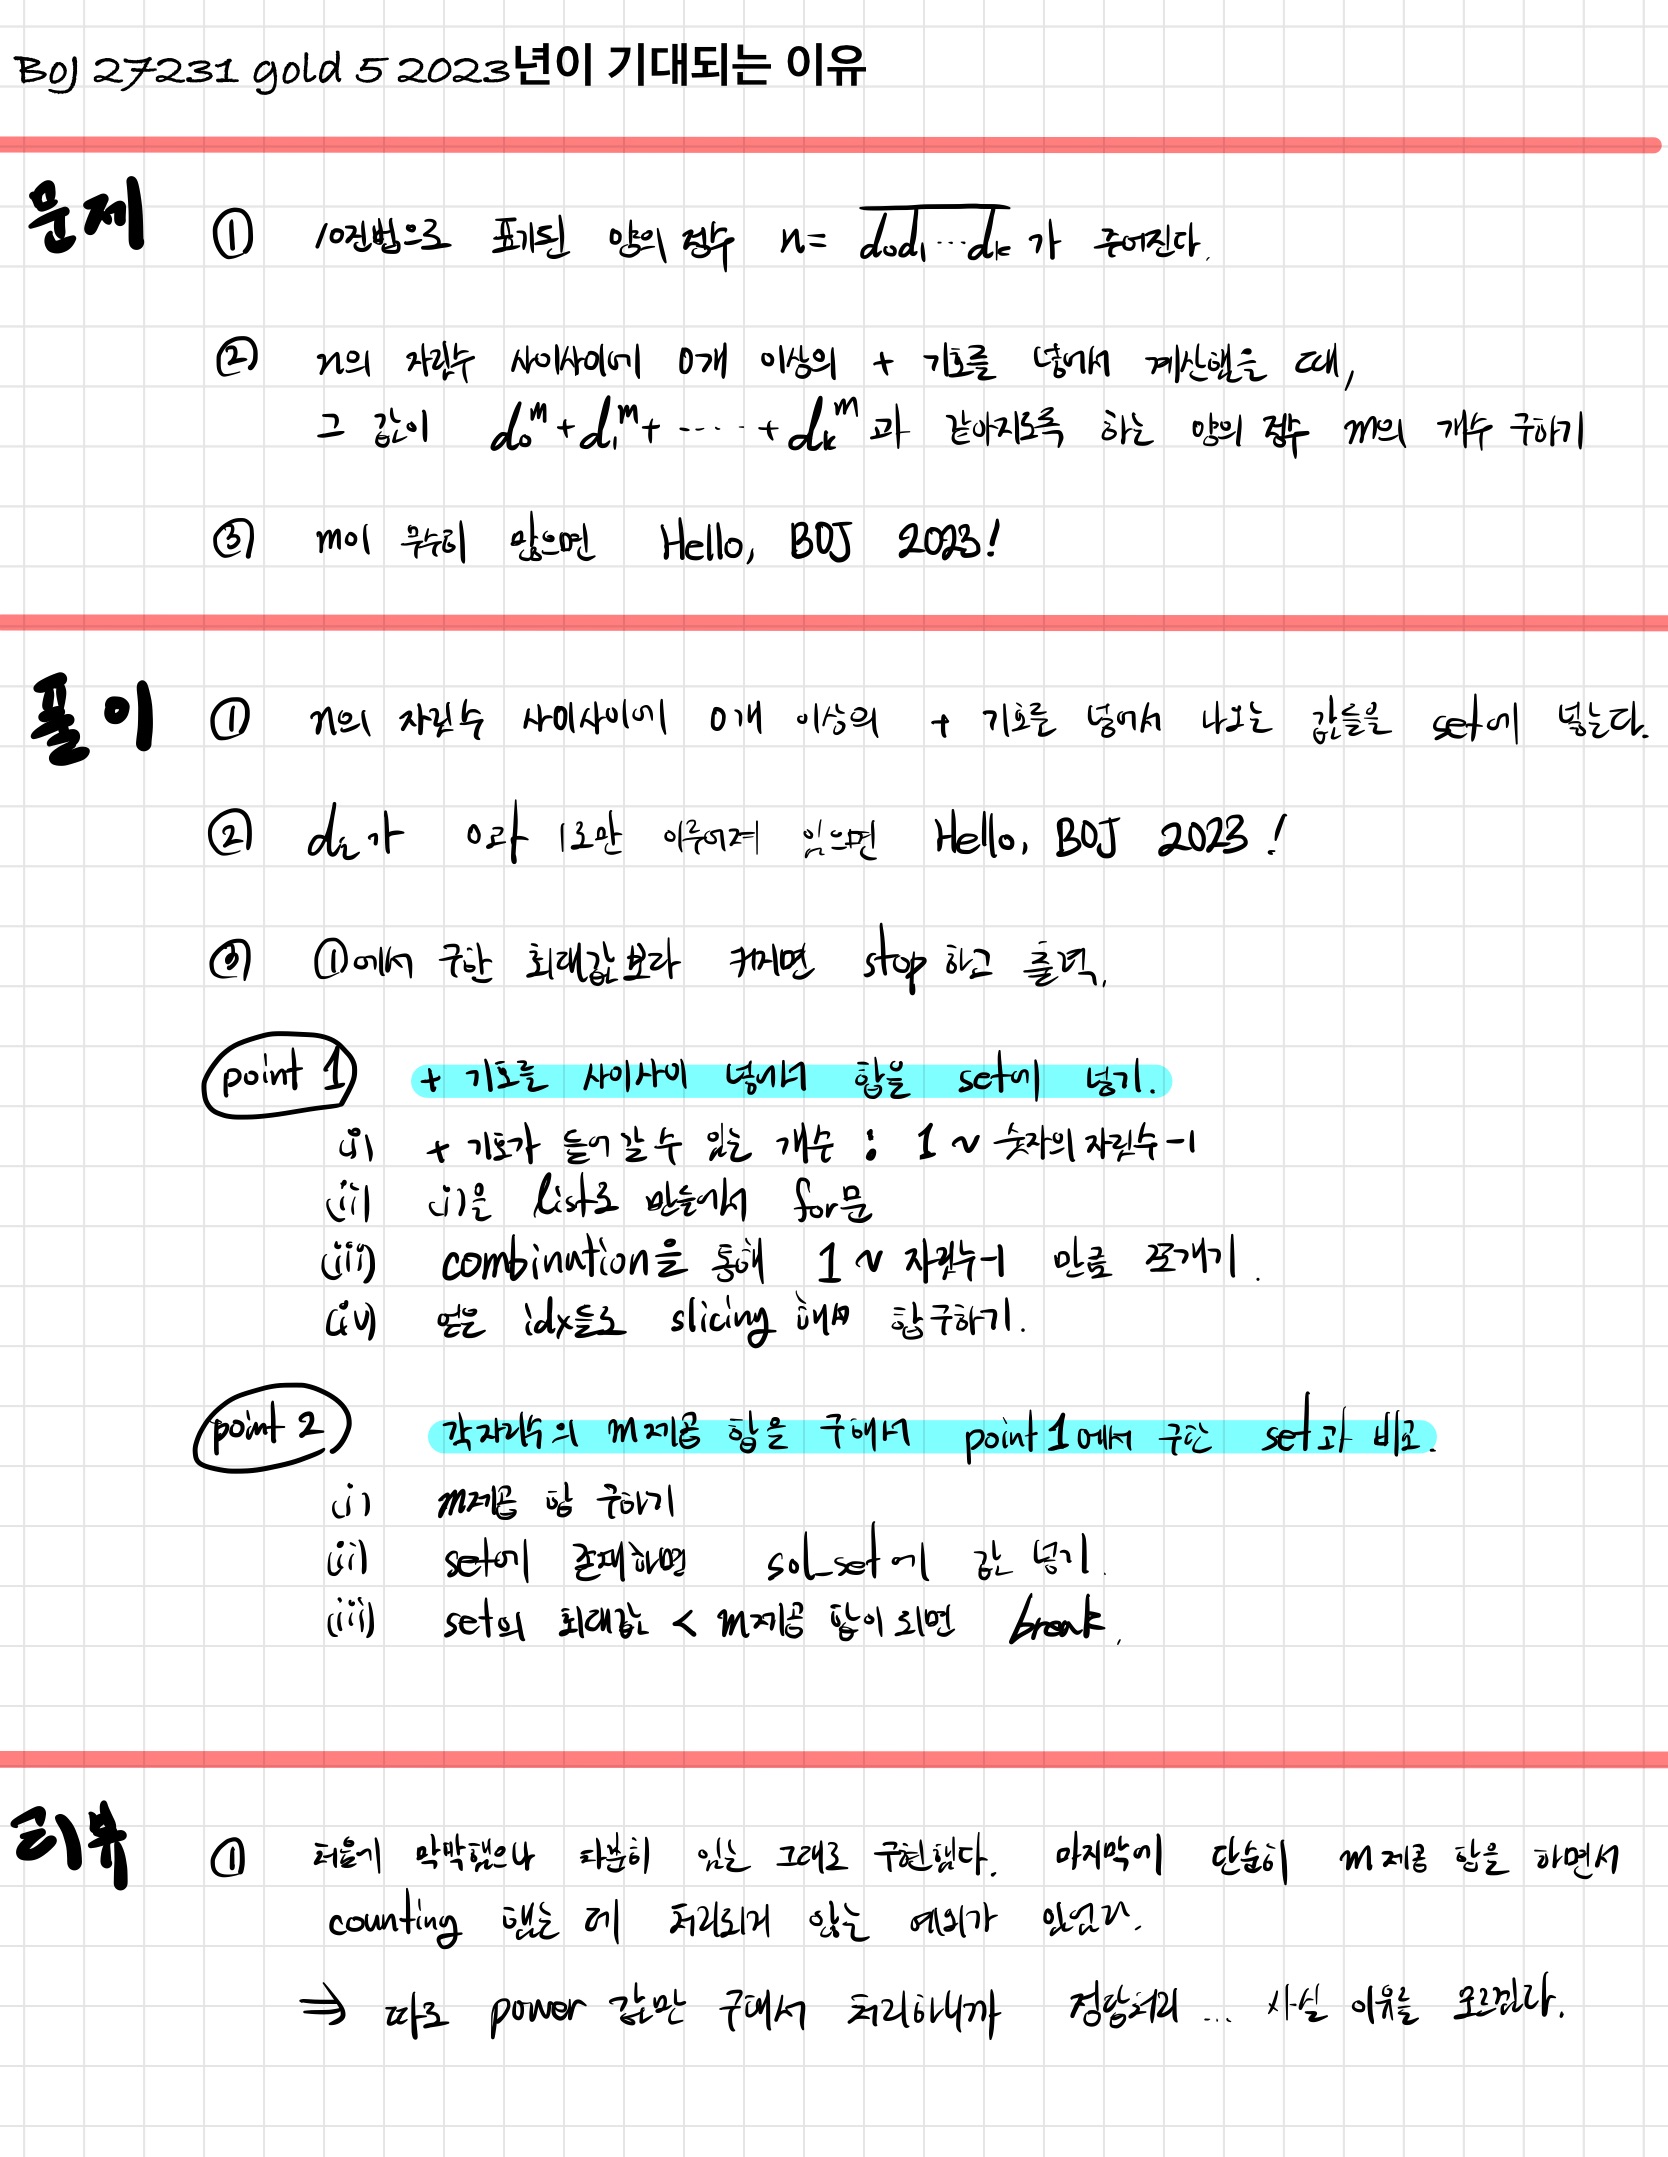 BOJ 27231 gold 5 2023년이 기대되는 이유
문제
① 10진법으로 표기된 양의 정수 n= d₀d₁···dₖ가 주어진다.
② n의 자릿수 사이사이에 0개 이상의 + 기호를 넣어서 계산했을 때,
그 값이 d₀ᵐ+d₁ᵐ+ ····· + dₖᵐ과 같아지도록 하는 양의 정수 m의 개수 구하기
③ m이 무수히 많으면 Hello, BOJ 2023!
풀이
① n의 자릿수 사이사이에 0개 이상의 + 기호를 넣어서 나오는 값들을 set에 넣는다.
② dᵢ가 0과 1로만 이루어져 있으면 Hello, BOJ 2023!
③ ①에서 구한 최대값보다 커지면 stop하고 출력.
point 1 + 기호를 사이사이 넣어서 합을 set에 넣기.
(i) + 기호가 들어갈 수 있는 개수 : 1 ~ 숫자의 자릿수-1
(ii) (i)을 list로 만들어서 for문
(iii) combination을 통해 1 ~ 자릿수-1 만큼 쪼개기.
(iv) 얻은 idx들로 slicing해서 합 구하기.
point 2 각 자리수의 m제곱 합을 구해서 point 1에서 구한 set과 비교.
(i) m제곱 합 구하기
(ii) set에 존재하면 sol_set에 값 넣기.
(iii) set의 최대값 < m제곱 합이 되면 break.
리뷰
① 처음에 막막했으나 차분히 있는 그대로 구현했다. 마지막에 단순히 m제곱 합을 하면서
counting 했는데 처리되지 않는 예외가 있었다.
⇒ 따로 power 값만 구해서 처리하니까 정답처리 ... 사실 이유를 모르겠다.